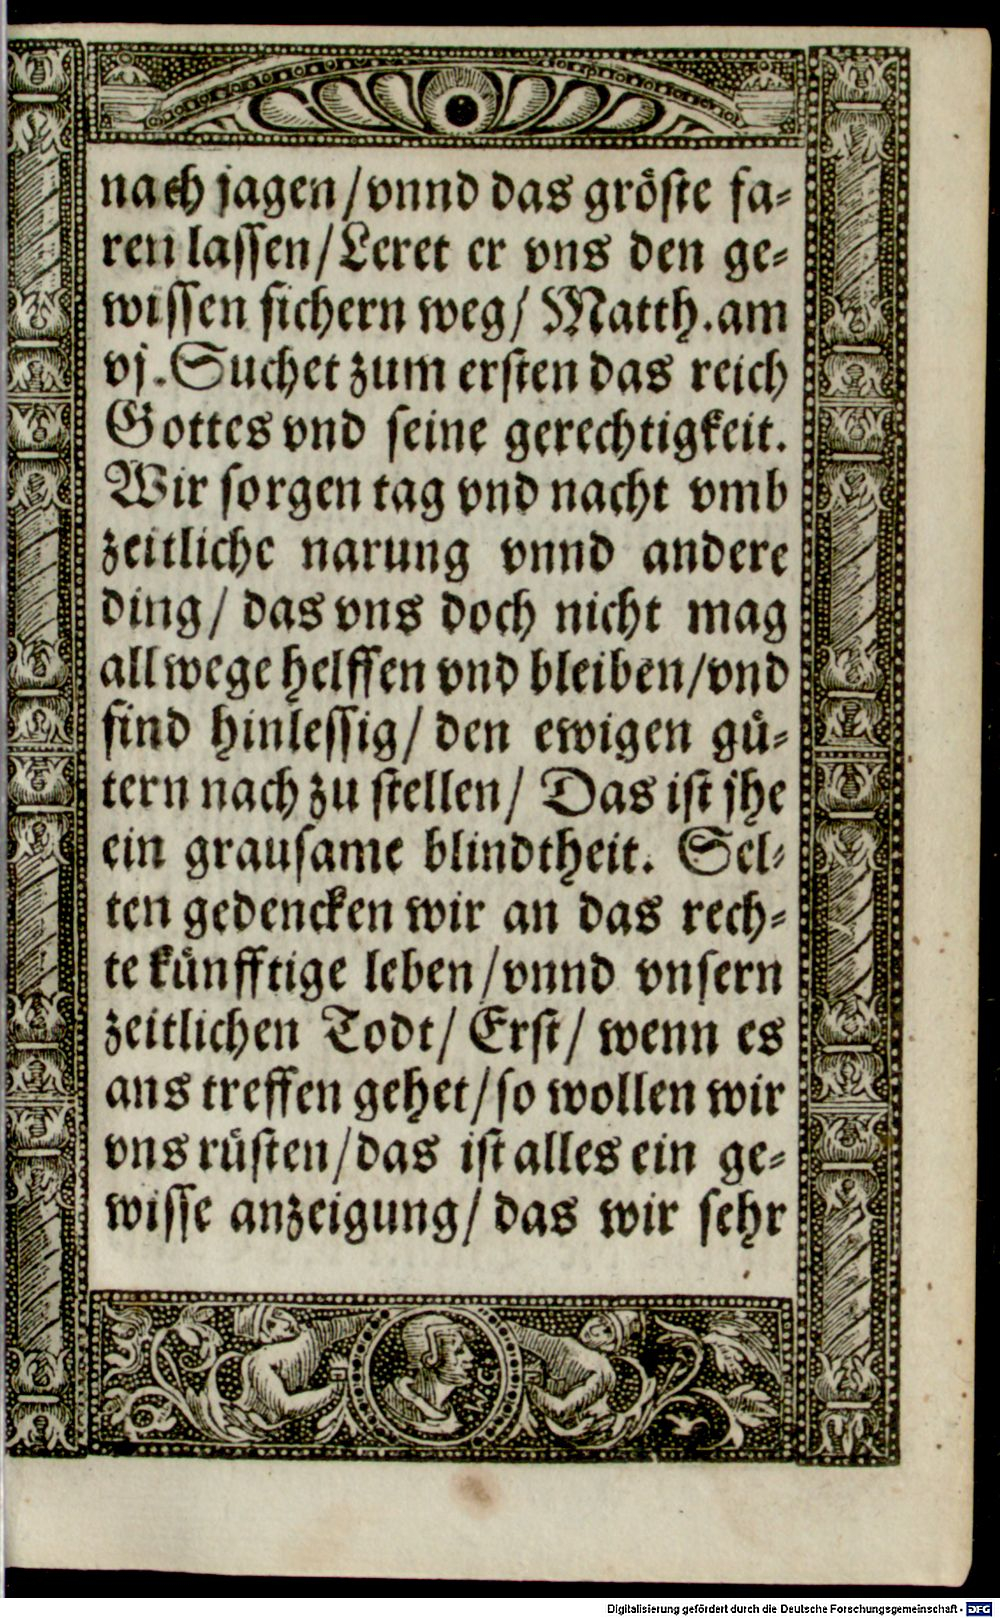 nach jagen/vnnd das gröste fa-
ren lassen/Leret er vns den ge-
wissen sichern weg/ Matth.am
vj.Suchet zum ersten das reich
Gottes vnd seine gerechtigkeit.
Wir sorgen tag vnd nacht vmb
zeitliche narung vnnd andere
ding/ das vns doch nicht mag
allwege helffen vnd bleiben/vnd
sind hinlessig/ den ewigen gü-
tern nach zu stellen/ Das ist jhe
ein grausame blindtheit. Sel-
ten gedencken wir an das rech-
te künfftige leben/vnnd vnsern
zeitlichen Todt/ Erst/ wenn es
ans treffen gehet/so wollen wir
vns rüsten/das ist alles ein ge-
wisse anzeigung/ das wir sehr
Digitalisierung gefördert durch die Deutsche Forschungsgemeinschaft - DFG